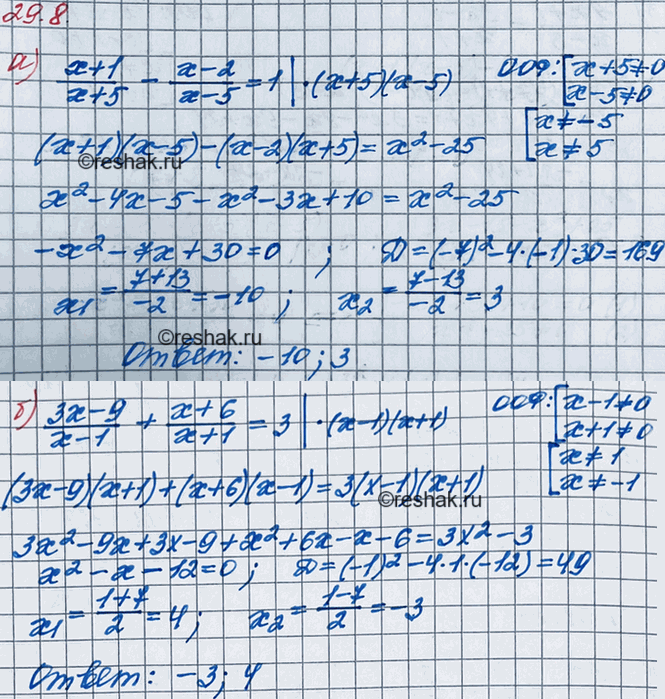 29.8.
а) (x+1)/(x+5) - (x-2)/(x-5) = 1 | ·(x+5)(x-5) ООФ: [x+5≠0
[x-5≠0
[x≠-5
[x≠5
(x+1)(x-5)-(x-2)(x+5)=x²-25
©reshak.ru
x²-4x-5-x²-3x+10=x²-25
-x²-7x+30=0 ; Д=(-7)²-4·(-1)·30=169
x₁=(7+13)/(-2)=-10 ; x₂=(7-13)/(-2)=3
©reshak.ru
Ответ: -10; 3
б) (3x-9)/(x-1) + (x+6)/(x+1) = 3 | ·(x-1)(x+1) ООФ: [x-1≠0
[x+1≠0
[x≠1
[x≠-1
(3x-9)(x+1)+(x+6)(x-1)=3(x-1)(x+1)
©reshak.ru
3x²-9x+3x-9+x²+6x-x-6=3x²-3
x²-x-12=0 ; Д=(-1)²-4·1·(-12)=49
x₁=(1+7)/2=4; x₂=(1-7)/2=-3
Ответ: -3; 4